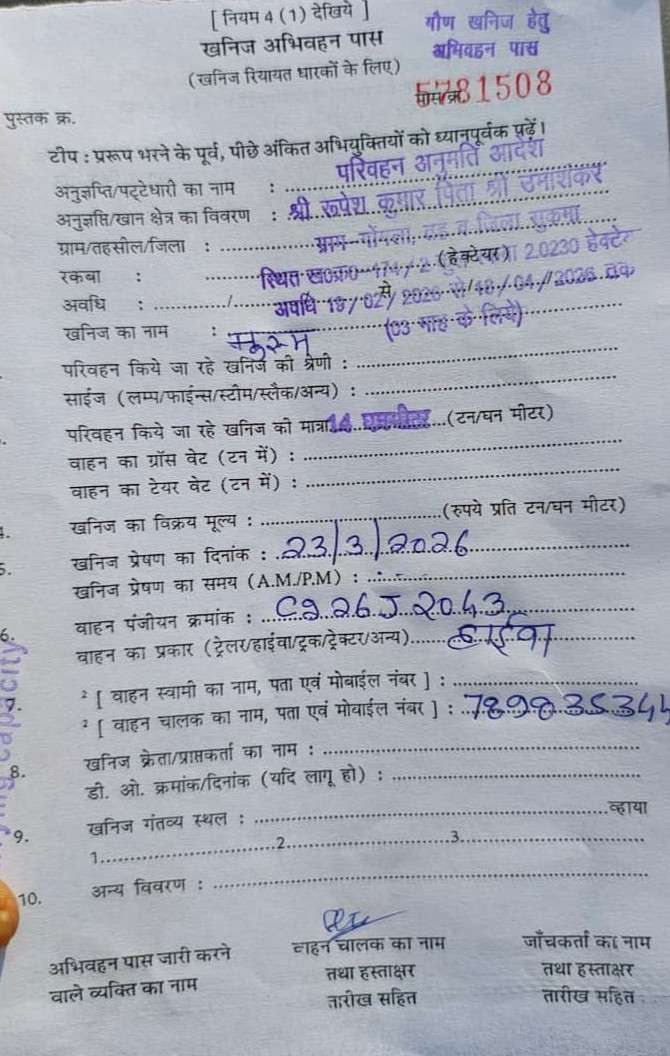 [ नियम 4 (1) देखिये ]
गौण खनिज हेतु
खनिज अभिवहन पास
अभिवहन पास
(खनिज रियायत धारकों के लिए)
पास क्र. 5781508
पुस्तक क्र.
टीप : प्ररूप भरने के पूर्व, पीछे अंकित अभियुक्तियों को ध्यानपूर्वक पढ़ें।
परिवहन अनुमति आदेश
अनुज्ञप्ति/पट्टेधारी का नाम :
अनुज्ञप्ति/खान क्षेत्र का विवरण : श्री रूपेश कुमार पिता श्री उमाशंकर
ग्राम/तहसील/जिला : ग्राम- गोंगला, तह व जिला सुकमा
रकबा : (हेक्टेयर) स्थित ख0क्र0 474/2 2.0230 हेक्टेर
अवधि : / से अवधि 19/02/2026 से 18/04/2026 तक
खनिज का नाम : मुरूम (03 माह के लिये)
परिवहन किये जा रहे खनिज की श्रेणी :
साईज (लम्प/फाईन्स/स्टीम/स्लैक/अन्य) :
परिवहन किये जा रहे खनिज की मात्रा 14 घनमीटर (टन/घन मीटर)
वाहन का ग्रॉस वेट (टन में) :
वाहन का टेयर वेट (टन में) :
खनिज का विक्रय मूल्य : (रुपये प्रति टन/घन मीटर)
खनिज प्रेषण का दिनांक : 23/3/2026
खनिज प्रेषण का समय (A.M./P.M) :
वाहन पंजीयन क्रमांक : CG26J2043
वाहन का प्रकार (ट्रेलर/हाईवा/ट्रक/ट्रेक्टर/अन्य) हाईवा
² [ वाहन स्वामी का नाम, पता एवं मोबाईल नंबर ] :
7. ² [ वाहन चालक का नाम, पता एवं मोबाईल नंबर ] : 789835344
खनिज क्रेता/प्राप्तकर्ता का नाम :
8. डी. ओ. क्रमांक/दिनांक (यदि लागू हो) :
9. खनिज गंतव्य स्थल : व्हाया
1. 2. 3.
10. अन्य विवरण :
अभिवहन पास जारी करने
वाले व्यक्ति का नाम
वाहन चालक का नाम
तथा हस्ताक्षर
तारीख सहित
जाँचकर्ता का नाम
तथा हस्ताक्षर
तारीख सहित